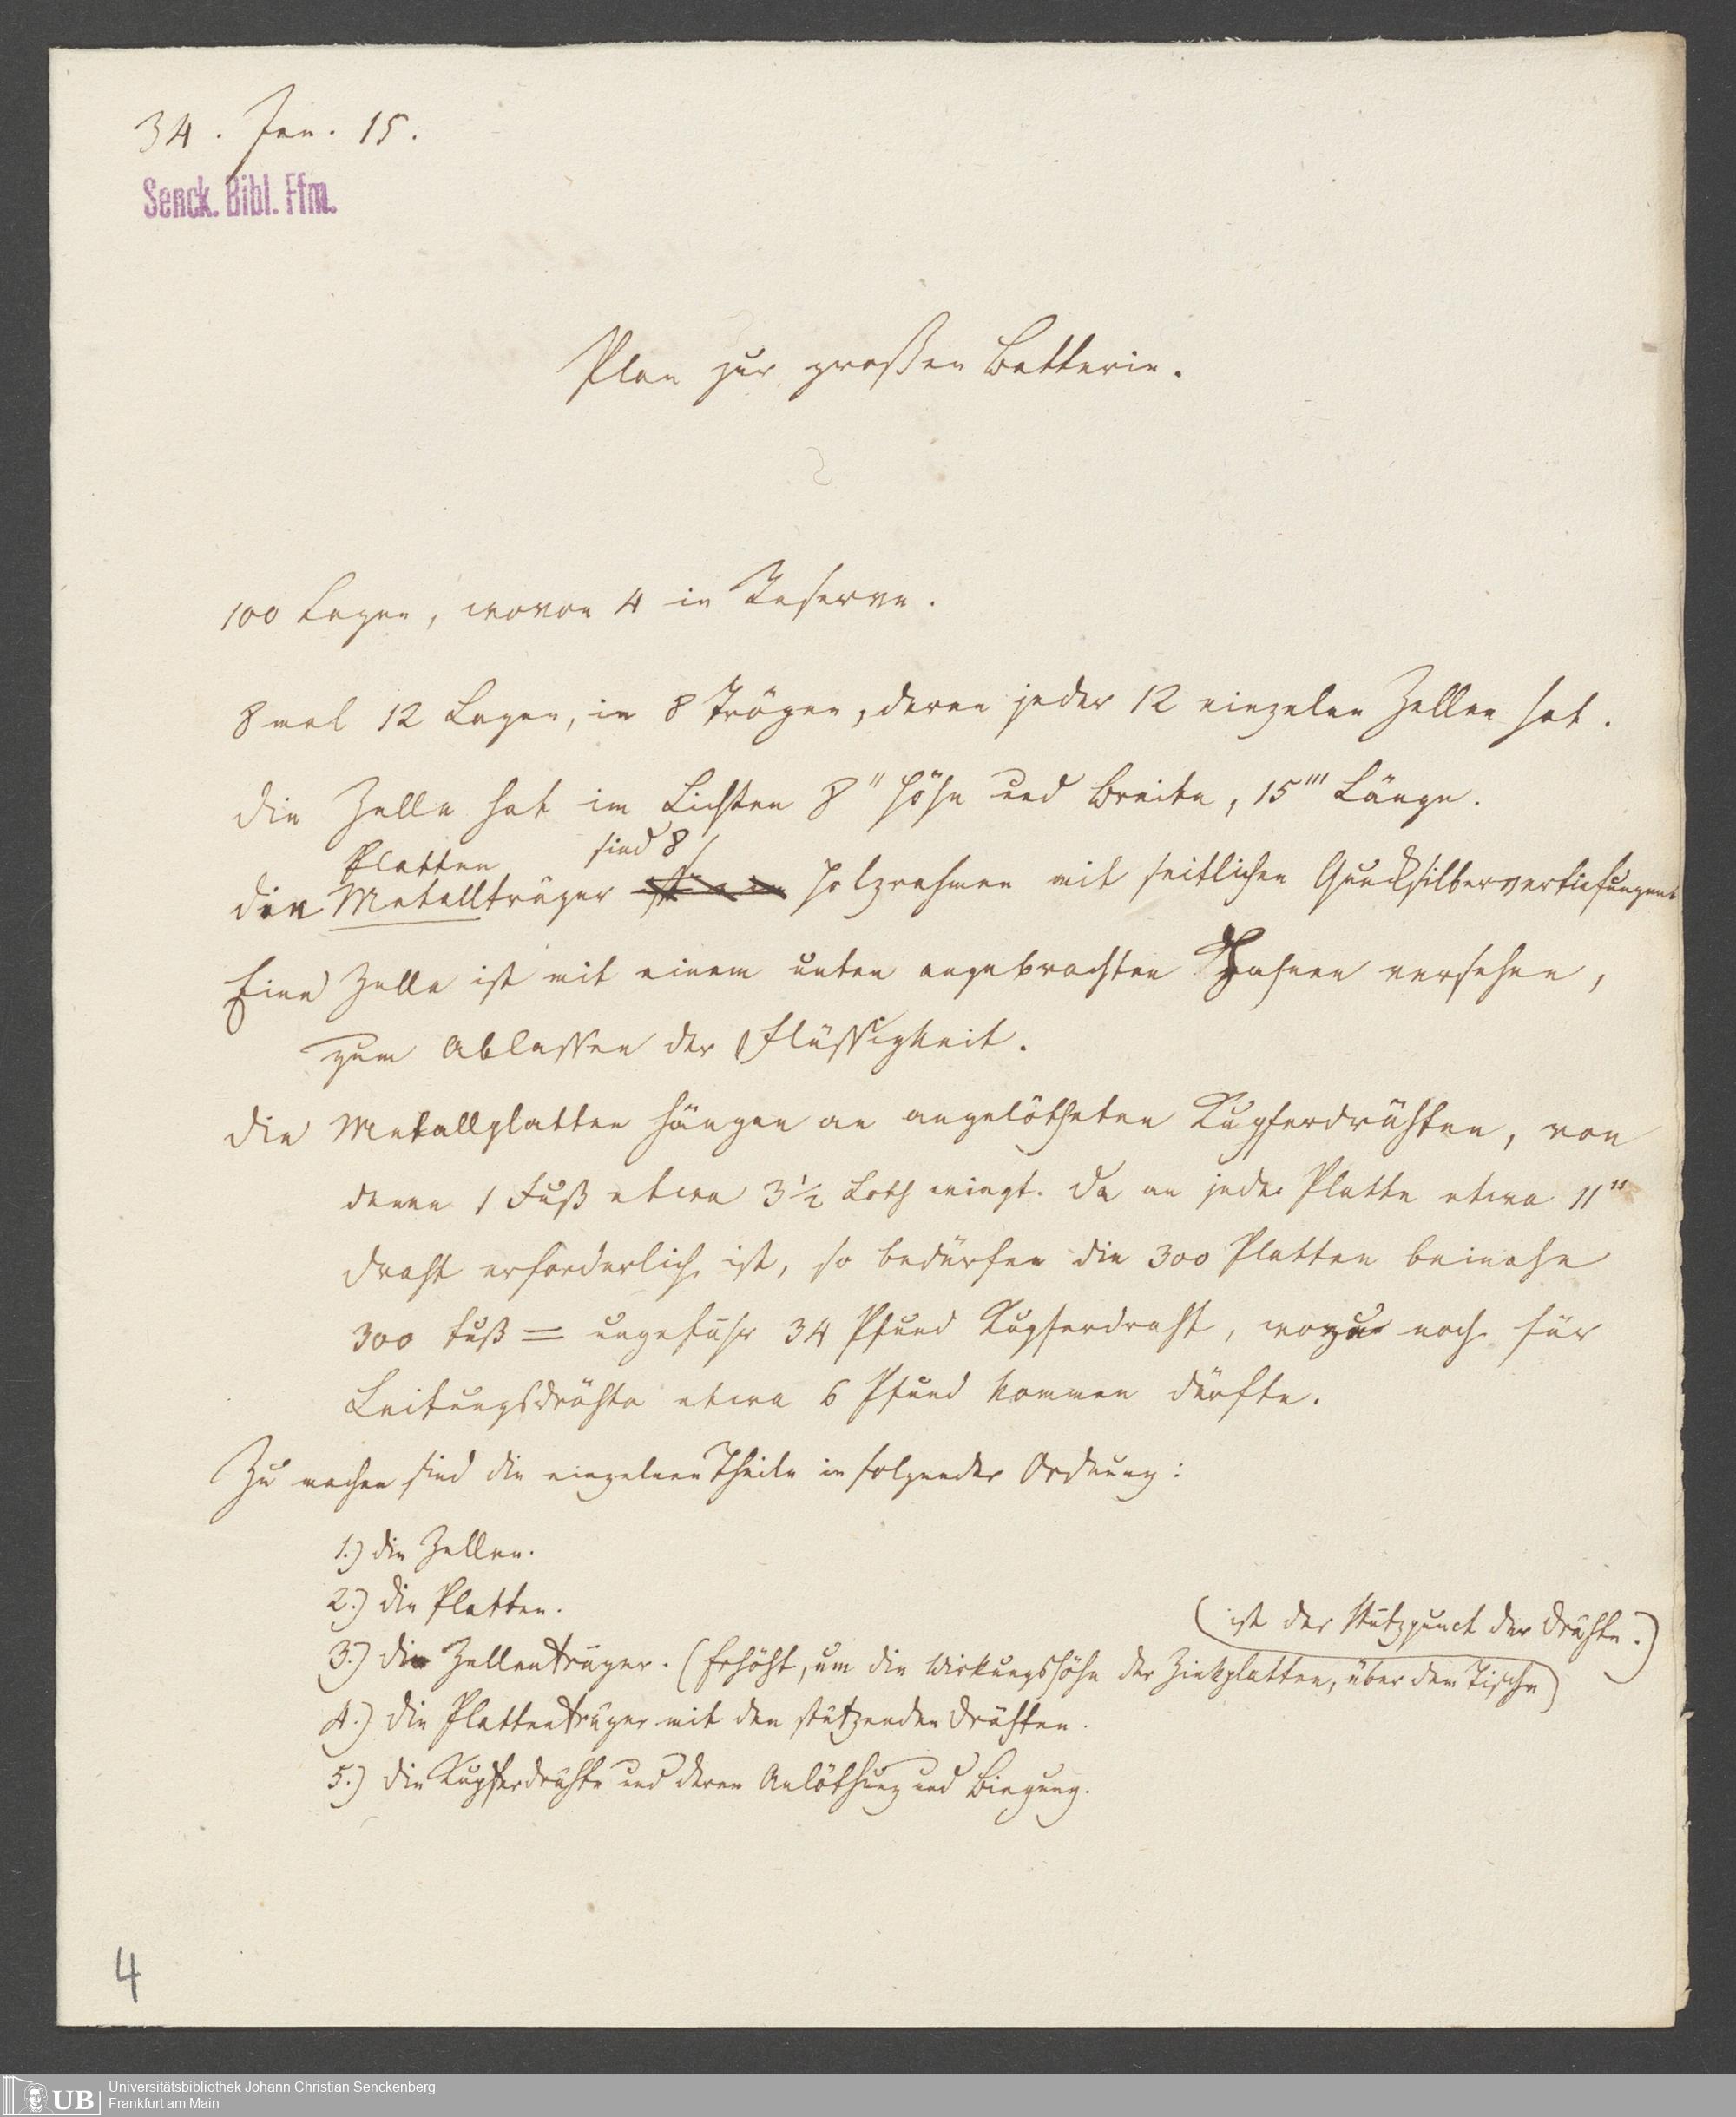 34. Jan. 15.
Senck. Bibl. Ffm.
Plan zur großen Batterie.
100 Lagen, wovon 4 in Reserve.
8 mal 12 Lagen, in 8 Trögen, deren jeder 12 einzelne Zellen hat.
Die Zelle hat im Lichten 8" Höhe und Breite, 15''' Länge.
Platten sind 8
Die Metallträger Holzrahmen mit seitlichen Quecksilbervertiefungen
Eine Zelle ist mit einem unten angebrachten Hahnen versehen,
zum Ablassen der Flüssigkeit.
Die Metallplatten hängen an angelötheten Kupferdrähten, von
denen 1 Fuß etwa 3½ Loth wiegt. Da an jede Platte etwa 11"
Draht erforderlich ist, so bedürfen die 300 Platten beinahe
300 Fuß = ungefähr 34 Pfund Kupferdraht, wozu noch für
Leitungsdrähte etwa 6 Pfund kommen dürfte.
Zu machen sind die einzelnen Theile in folgender Ordnung:
1.) die Zellen.
2.) die Platten.
(ist der Stützpunct der Drähte.)
3.) die Zellenträger. (Erhöht, um die Wirkungshöhe der Zinkplatten, über dem Tische)
4.) die Plattenträger mit den stützenden Drähten.
5.) die Kupferdrähte und deren Anlöthung und Biegung.
4
UB
Universitätsbibliothek Johann Christian Senckenberg
Frankfurt am Main